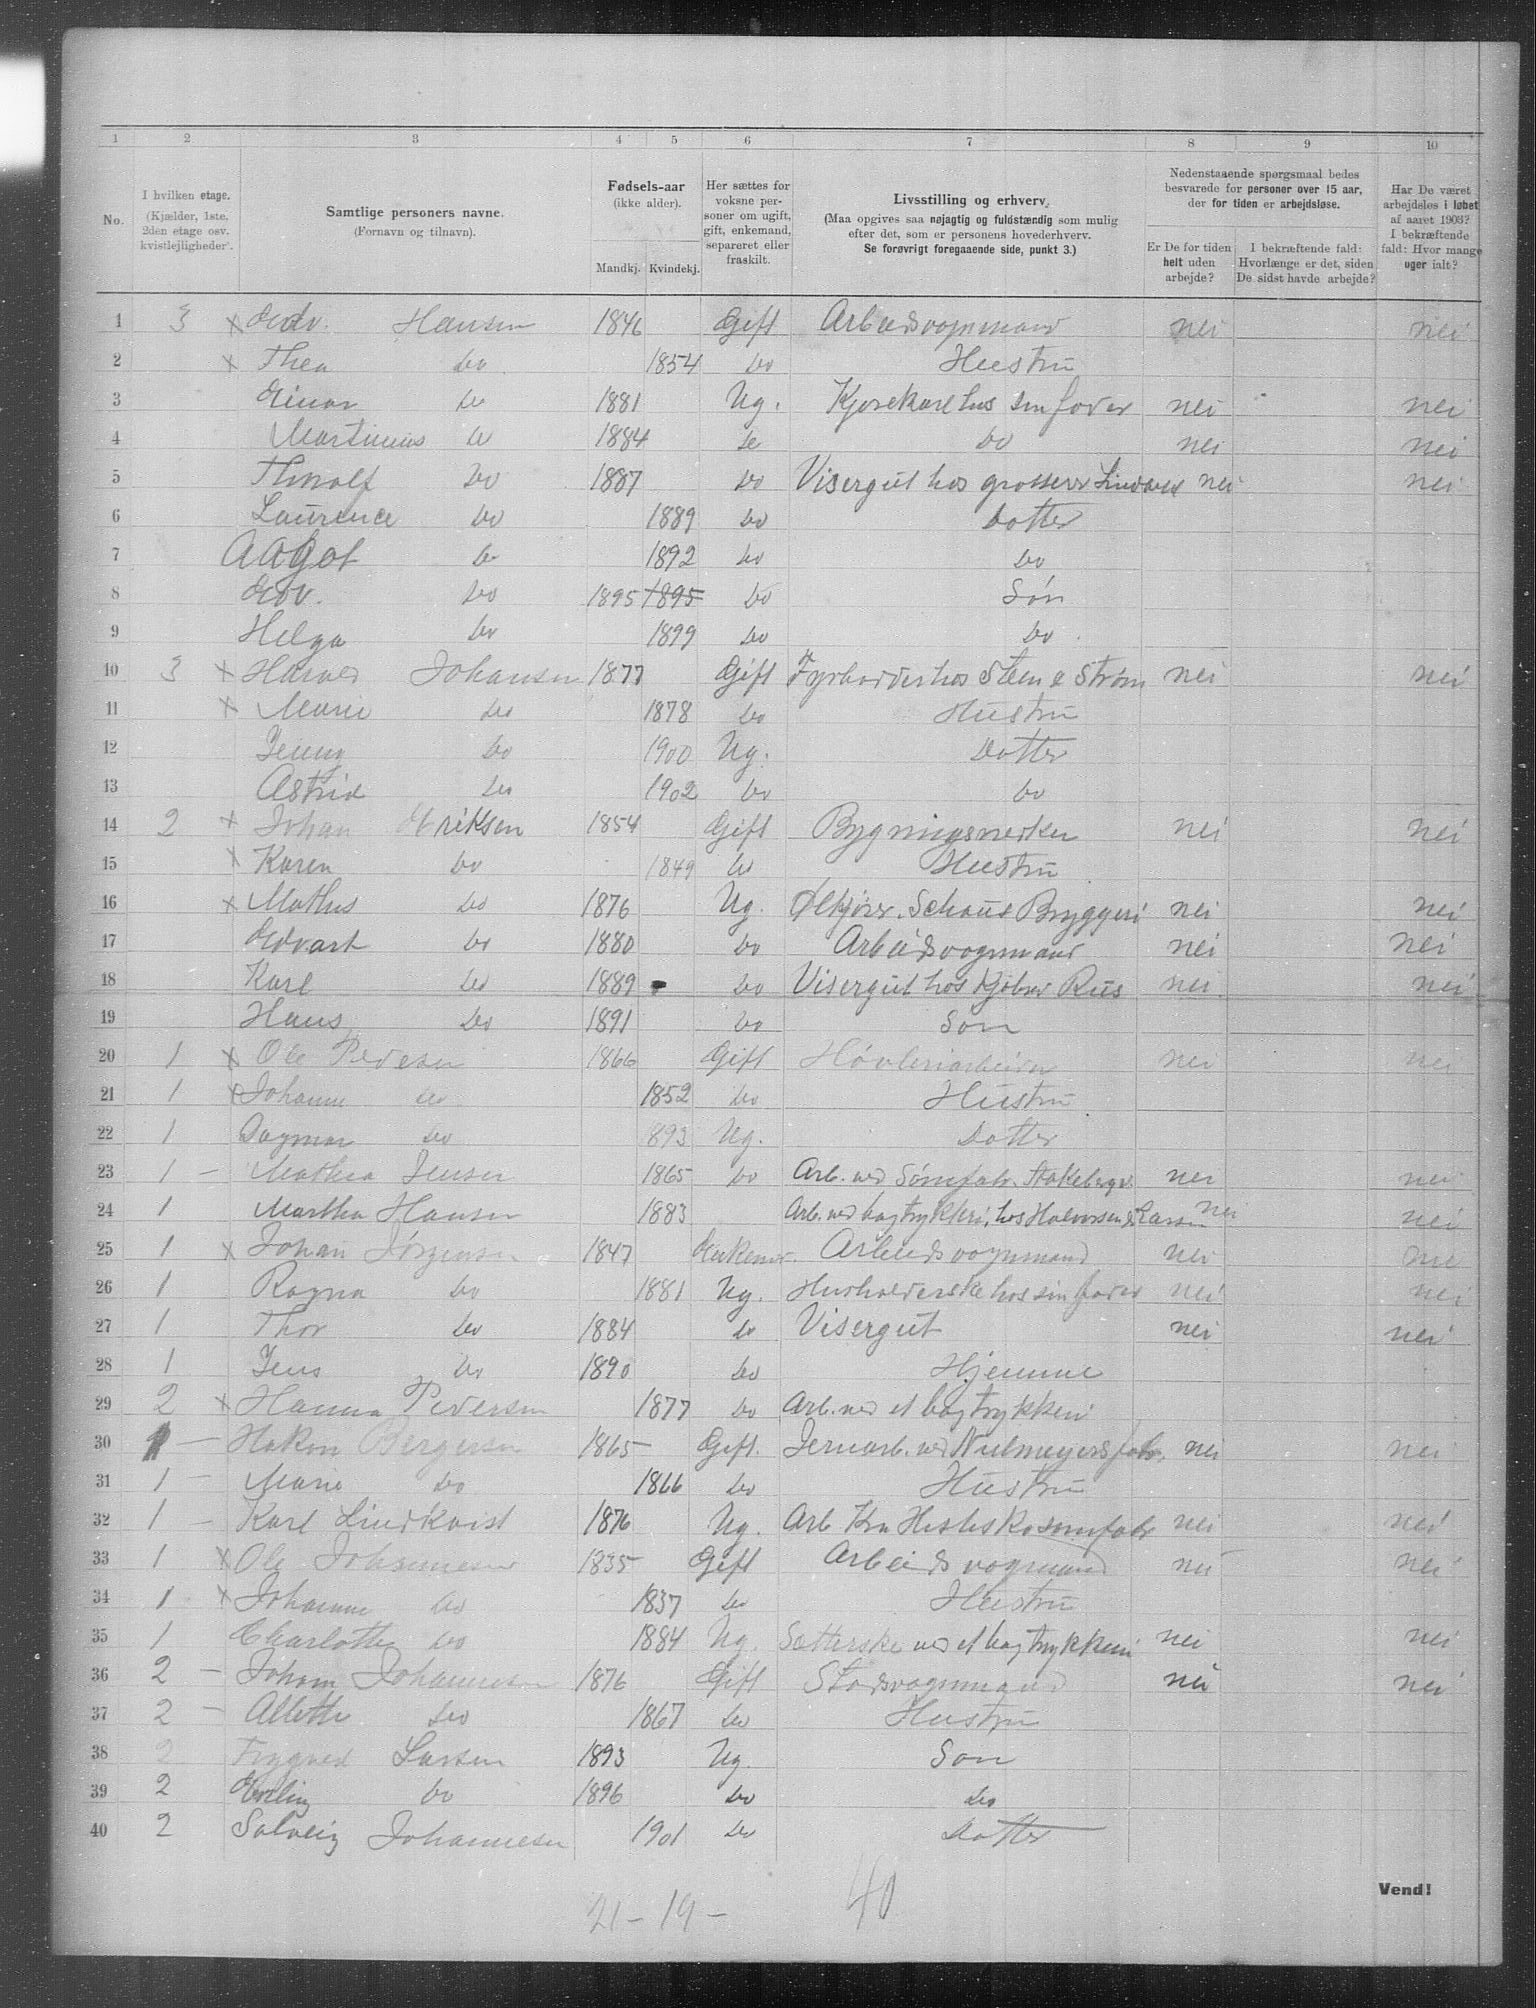 1 2 3 4 5 6 7 8 9 10
No.
I hvilken etage. (Kjælder, 1ste, 2den etage osv. kvistlejligheder).
Samtlige personers navne. (Fornavn og tilnavn).
Fødsels-aar (ikke alder). Mandkj. Kvindekj.
Her sættes for voksne personer om ugift, gift, enkemand, separeret eller fraskilt.
Livsstilling og erhverv. (Maa opgives saa nøjagtig og fuldstændig som mulig efter det, som er personens hovederhverv. Se forøvrigt foregaaende side, punkt 3.)
Nedenstaaende spørgsmaal bedes besvarede for personer over 15 aar, der for tiden er arbejdsløse.
Er De for tiden helt uden arbejde?
I bekræftende fald: Hvorlænge er det, siden De sidst havde arbejde?
Har De været arbejdsløs i løbet af aaret 1903? I bekræftende fald: Hvor mange uger ialt?
1 3 x Edv. Hansen 1846 Gift Arbeidsvognmand nei nei
2 x Thea do 1854 do Hustru
3 Einar do 1881 Ug. Kjørekarl hos sin fader nei nei
4 Martinius do 1884 do do nei nei
5 Thoralf do 1887 do Visergut hos grosserer nei nei
6 Laurence do 1889 do Datter
7 Aagot do 1892 do do
8 Edv. do 1895 1895 do Søn
9 Helga do 1899 do do
10 3 x Harald Johansen 1877 Gift Fyrbøder hos Steen & Strøm nei nei
11 x Marie do 1878 do Hustru
12 Jenny do 1900 Ug. Datter
13 Astrid do 1902 do do
14 2 x Johan Eriksen 1854 Gift Bygningssnedker nei nei
15 x Karen do 1849 do Hustru
16 x Mathus do 1876 Ug. Ølkjører. Schous Bryggeri nei nei
17 Edvart do 1880 do Arbeidsvognmand nei nei
18 Karl do 1889 do Visergut hos Kjøbm Ruus nei nei
19 Hans do 1891 do Søn
20 1 x Ole Pedersen 1866 Gift Høvleriarbeider nei nei
21 1 x Johanne do 1852 do Hustru
22 1 Dagmar do 893 Ug. Datter
23 1 – Mathea Jensen 1865 do Arb. ved Sømfabr. Stakeberg nei nei
24 1 Martha Hansen 1883 Arb. ved bogtrykkeri, hos Halvorsen & Larsen nei nei
25 1 x Johan Jørgensen 1847 Enkem. Arbeidsvognmand nei nei
26 1 Ragna do 1881 Ug. Husholderske hos sin fader nei nei
27 1 Thor do 1884 do Visergut nei nei
28 1 Jens do 1890 do Hjemme
29 2 x Hanna Pedersen 1877 do Arb. ved et bogtrykkeri
30 1 – Hakon Bergersen 1865 Gift. Jernarb. ved fabr. nei nei
31 1 – Marie do 1866 do Hustru
32 1 – Karl Lindkvist 1876 Ug. Arb Kra Hesteskosømfabr nei nei
33 1 x Ole Johannesen 1835 Gift Arbeidsvognmand nei nei
34 1 x Johanne do 1837 do Hustru
35 1 Charlotte do 1884 Ug. Sætterske ved et bogtrykkeri nei nei
36 2 – Johan Johannesen 1876 Gift Stadsvognmand nei nei
37 2 – Alette do 1867 do Hustru
38 2 Trygved Larsen 1893 Ug. Søn
39 2 Erling do 1896 do do
40 2 Solveig Johannesen 1901 do Datter
21 – 19 – 40
Vend!